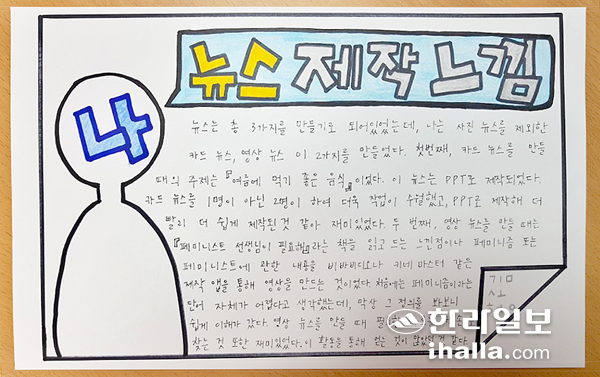 뉴스 제작 느낌
나
뉴스는 총 3가지를 만들기로 되어있었는데, 나는 사진 뉴스를 제외한
카드 뉴스, 영상 뉴스 이 2가지를 만들었다. 첫번째, 카드 뉴스를 만들
때의 주제는 『여름에 먹기 좋은 음식』이었다. 이 뉴스는 PPT로 제작되었다.
카드 뉴스를 1명이 아닌 2명이 하여 더욱 작업이 수월했고, PPT로 제작해 더
빨리 더 쉽게 제작된 것 같아 재미있었다. 두 번째, 영상 뉴스를 만들 때는
『페미니스트 선생님이 필요해』라는 책을 읽고 드는 느낀점이나 페미니즘 또는
페미니스트에 관한 내용을 비바비디오나 키네마스터 같은
제작 앱을 통해 영상을 만드는 것이었다. 처음에는 페미니즘이라는
단어 자체가 어렵다고 생각했는데, 막상 그 정의를 봐보니
쉽게 이해가 갔다. 영상 뉴스를 만들 때 필
찾는 것 또한 재미있었다. 이 활동을 통해 얻는 것이 많았던 것 같다.
한라일보
ihalla.com